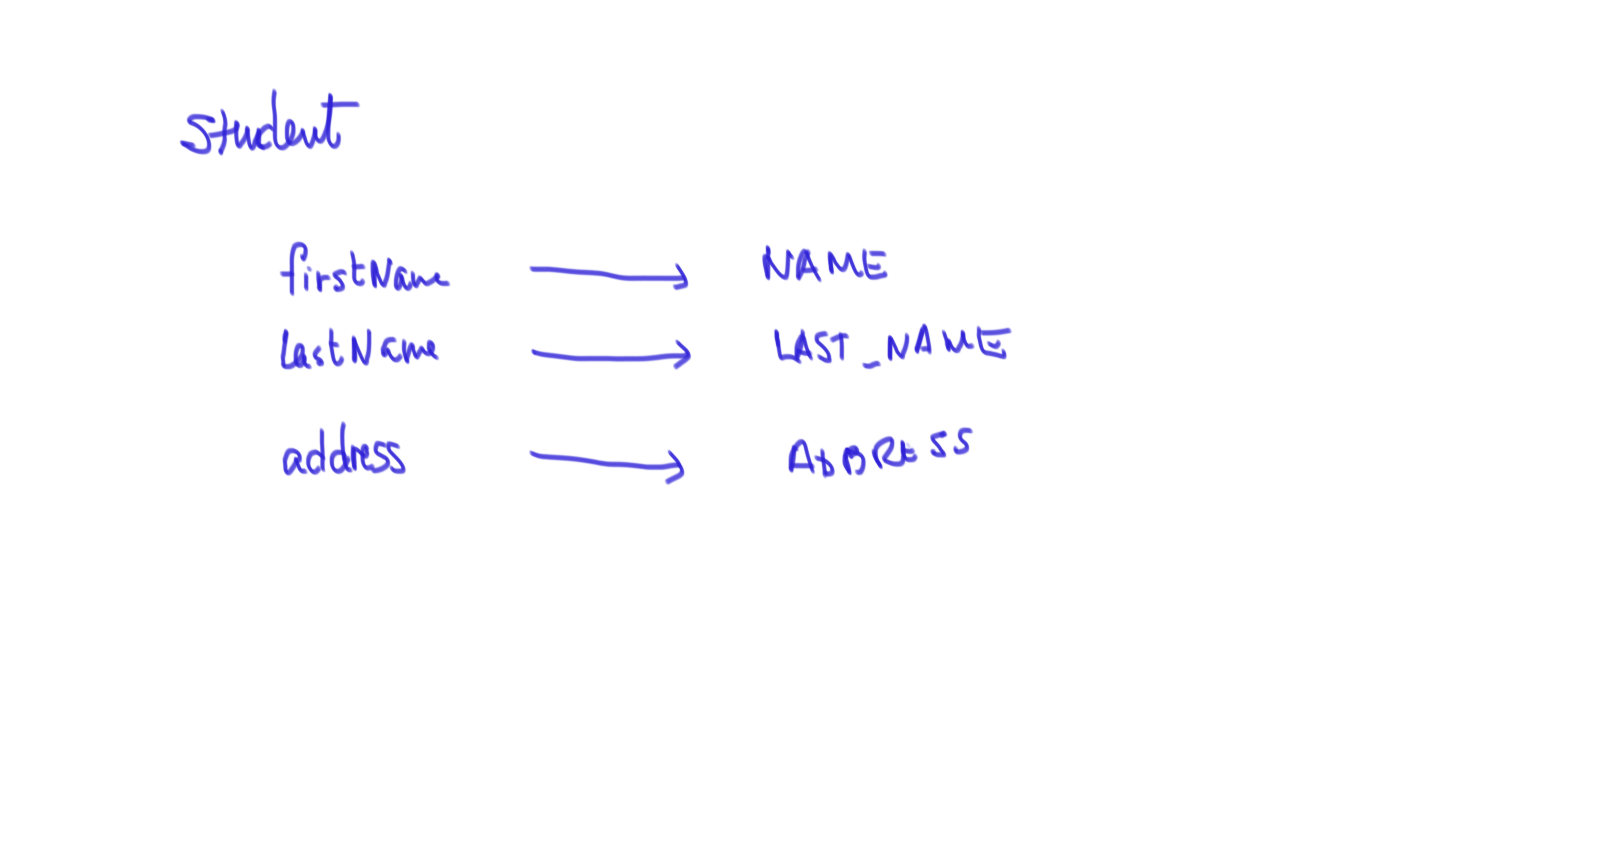 Student
firstName → NAME
lastName → LAST_NAME
address → ADDRESS